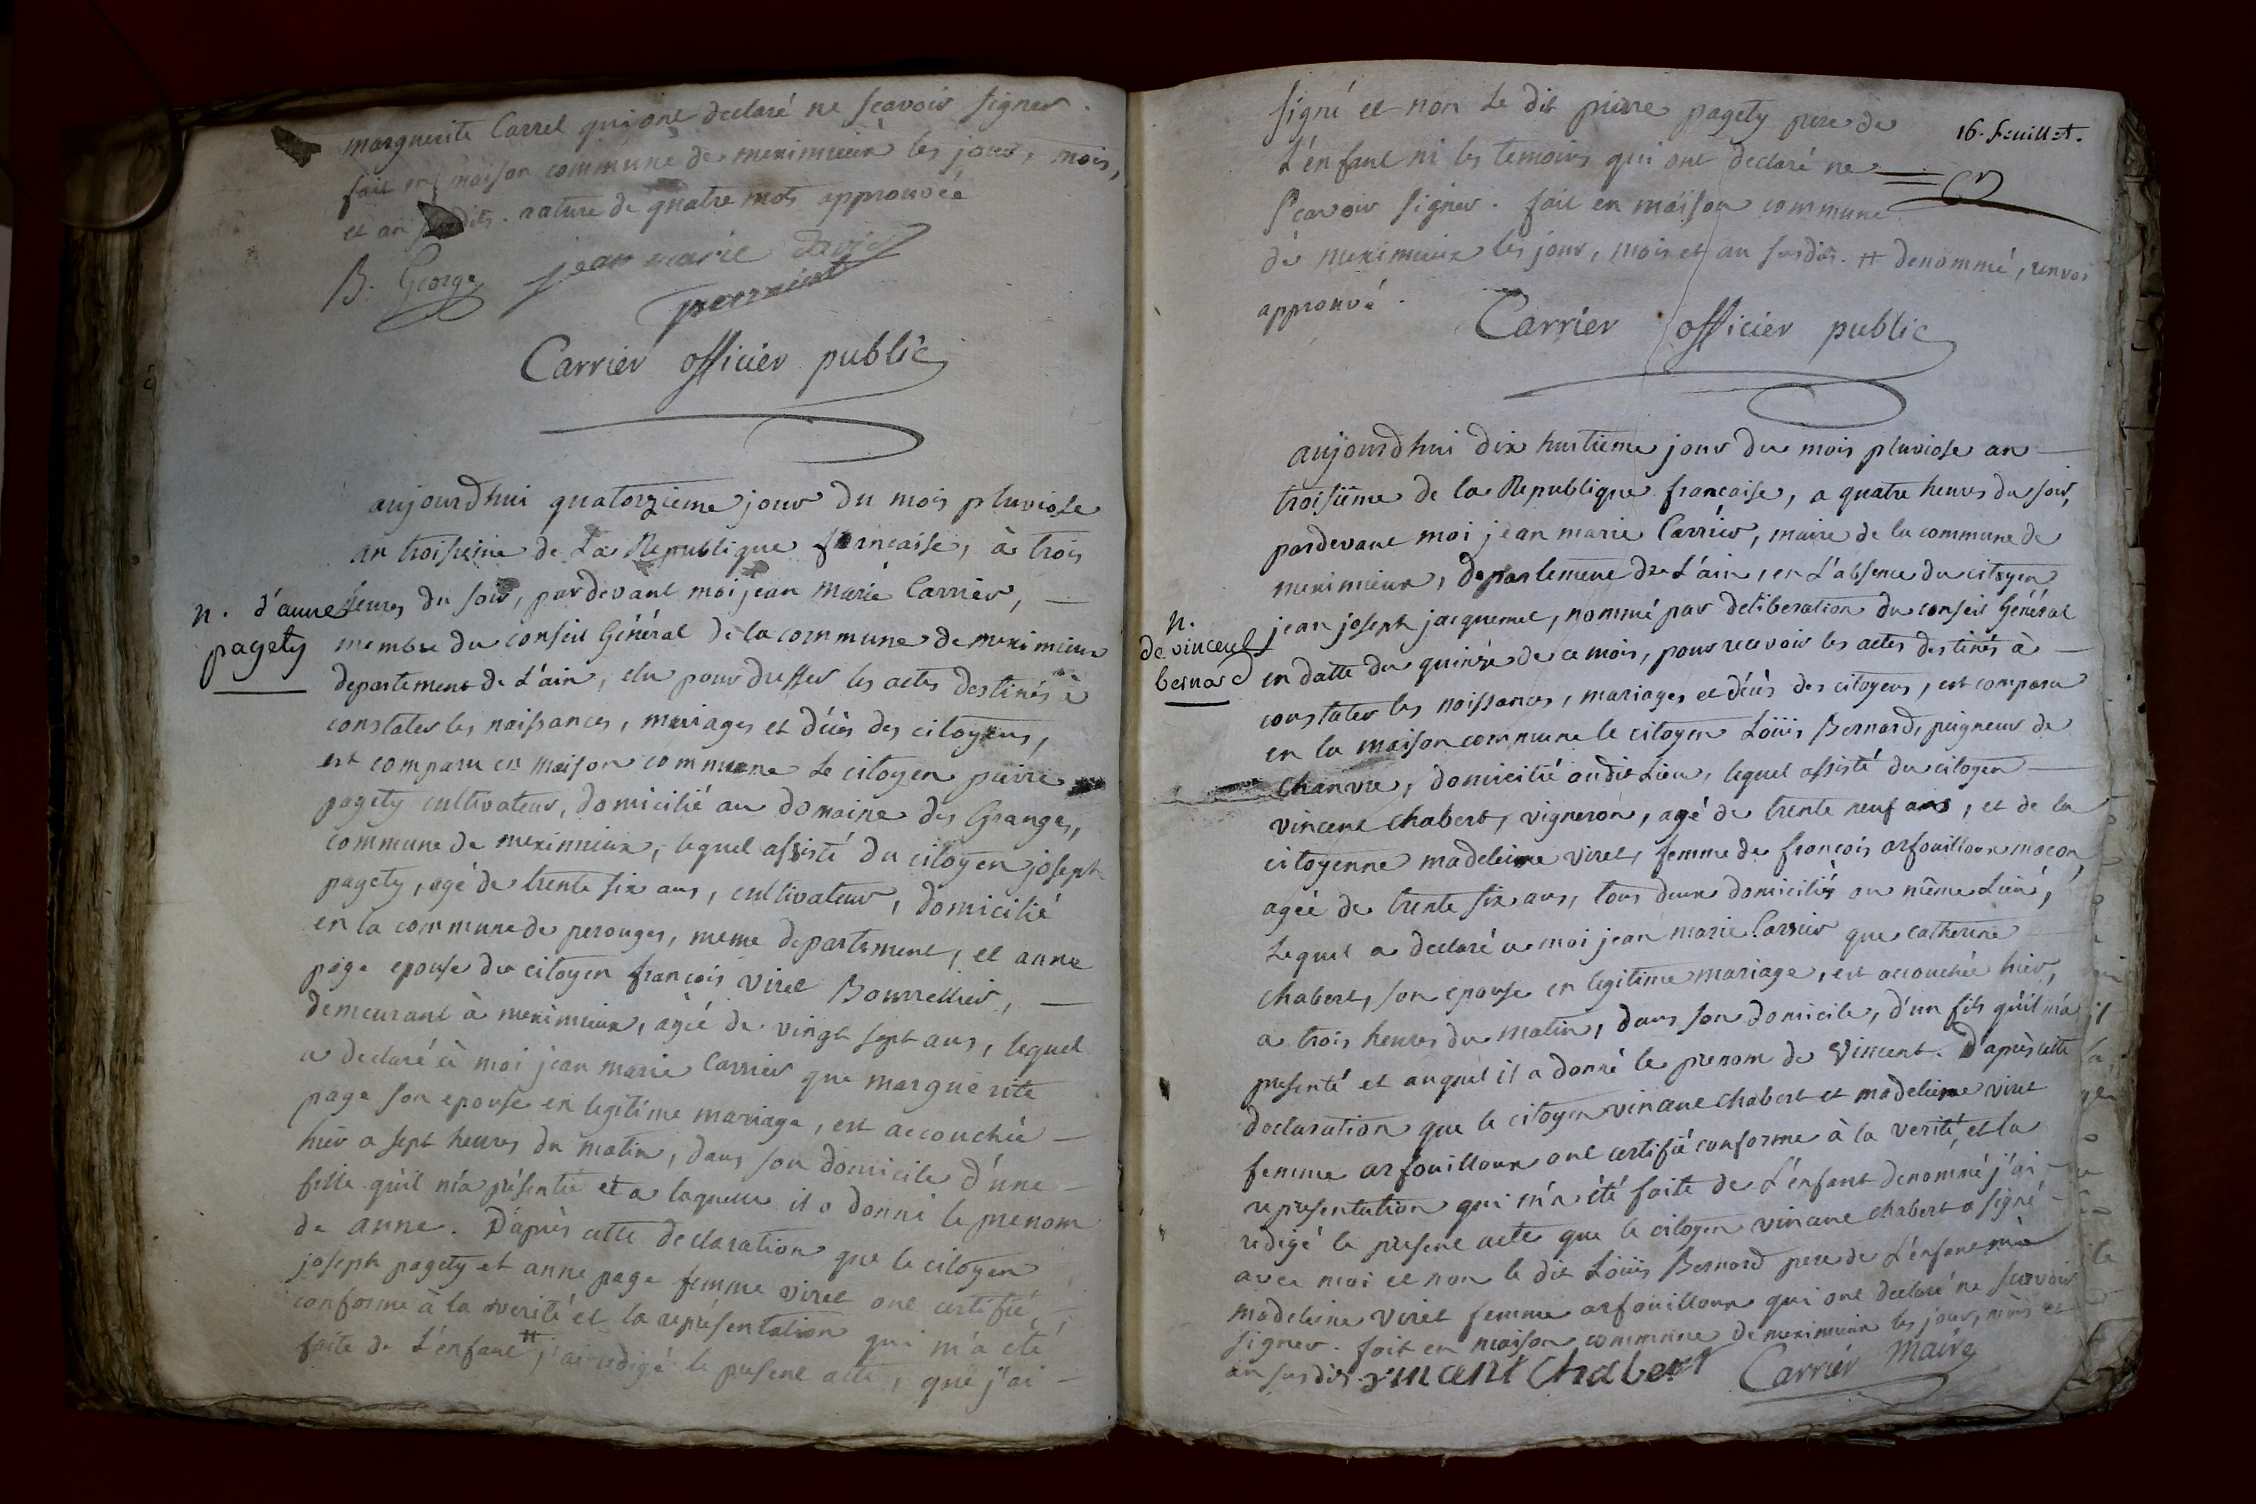 marguerite Carrel qui ont declaré ne scavoir signer.
fait en maison commune de meximieux les jour, mois,
et an susdits. rature de quatre mots approuvée
B. George jean marie
Carrier officier public
aujourd'hui quatorzieme jour du mois pluviose
an troisieme de La Republique francaise, à trois
n. d'anne
pagety
heures du soir, pardevant moi jean marie Carrier,
membre du conseil Général de la commune de meximieux
departement de L'ain, elu pour dresser les actes destinés à
constater les naissances, mariages et décès des citoyens,
est comparu en maison commune Le citoyen pierre
pagety cultivateur, domicilié au domaine des Granges,
commune de meximieux, lequel assisté du citoyen joseph
pagety, agé de trente six ans, cultivateur, domicilié
en la commune de perouges, meme departement, et anne
page epouse du citoyen françois viret Bourrellier,
demeurant à meximieux, agée de vingt sept ans, lequel
a declaré à moi jean marie Carrier que marguerite
page son epouse en legitime mariage, est accouchée
hier a sept heures du matin, dans son domicile d'une
fille qu'il m'a présentée et a laquelle il a donné le prenom
de anne. D'après cette declaration que le citoyen
joseph pagety et anne page femme viret ont certifié,
conforme à la verité et la représentation qui m'a eté
faite de L'enfant # j'ai redigé le present acte, que j'ai
16. feuillet.
signé et non Le dit pierre pagety pere de
L'enfant ni les temoins qui ont declaré ne
scavoir signer. fait en maison commune
de meximieux les jour, mois et an susdits. # denommé, renvoi
approuvé.
Carrier officier public
aujourd'hui dix huitieme jour du mois pluviose an
troisième de la Republique francaise, a quatre heures du soir,
pardevant moi jean marie Carrier, maire de la commune de
meximieux, departement de L'ain, en L'absence du citoyen
n.
de vincent
bernard
jean joseph jacquemet, nommé par deliberation du conseil Général
en datte du quinze de ce mois, pour recevoir les actes destinés à
constater les naissances, mariages et décès des citoyens, est comparu
en la maison commune le citoyen Loüis Bernard, peigneur de
chanvre, domicilié audit Lieu, lequel assisté du citoyen
vincent chabert, vigneron, agé de trente neuf ans, et de la
citoyenne madeleine viret, femme de françois arfouilloux macon,
agée de trente six ans, tous deux domiciliés au même Lieu,
Lequel a declaré a moi jean marie Carrier que catherine
chabert, son epouse en legitime mariage, est accouchée hier,
a trois heures du matin, dans son domicile, d'un fils qu'il m'a
presenté et auquel il a donné le prenom de Vincent. D'après cette
declaration que le citoyen vincent chabert et madeleine viret
femme arfouilloux ont certifié conforme à la verité, et la
representation qui m'a été faite de L'enfant denommé j'ai
redigé le present acte que le citoyen vincent chabert a signé
avec moi et non le dit Loüis Bernard pere de L'enfant ni
madeleine viret femme arfouilloux qui ont declaré ne scavoir
signer. fait en maison commune de meximieux les jour, mois et
an susdits. vincent chabert Carrier maire